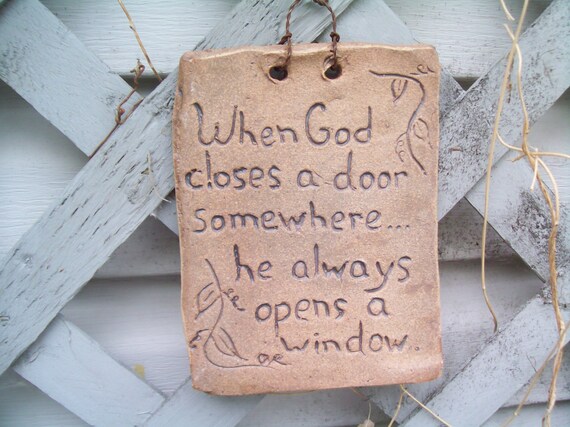 When God
closes a door
somewhere...
he always
opens a
window.